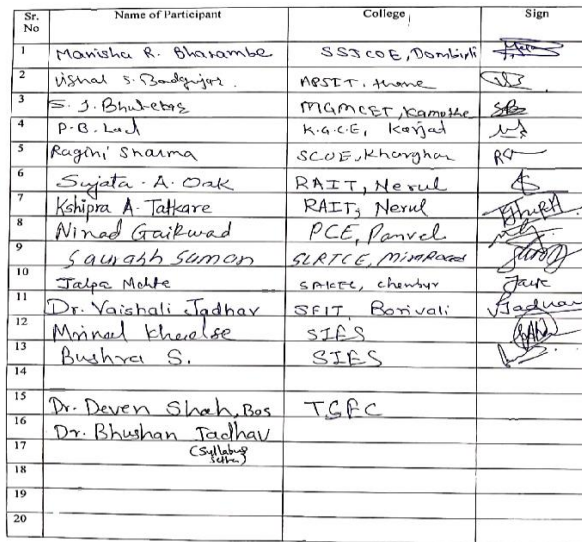 Sr. No Name of Participant College Sign
1 Manisha R. Bharambe SSJCOE, Dombivli
2 Vishal S. Badgujar. APSIT, thane
3 S. J. Bhutekar MGMCET, Kamothe
4 P.B. Lad K.G.C.E, Karjat
5 Ragini Sharma SCOE, Kharghar
6 Sujata. A. Oak RAIT, Nerul
7 Kshipra A. Tatkare RAIT, Nerul
8 Ninad Gaikwad PCE, Panvel
9 Saurabh Suman SLRTCE, Miraroad
10 Jalpa Mehta
11 Dr. Vaishali Jadhav SFIT, Borivali VJadhav
12 SIES
13 Bushra S. SIES
14
15 Dr. Deven Shah, Bos TCEC
16 Dr. Bhushan Jadhav
17 (Syllabus
18
19
20